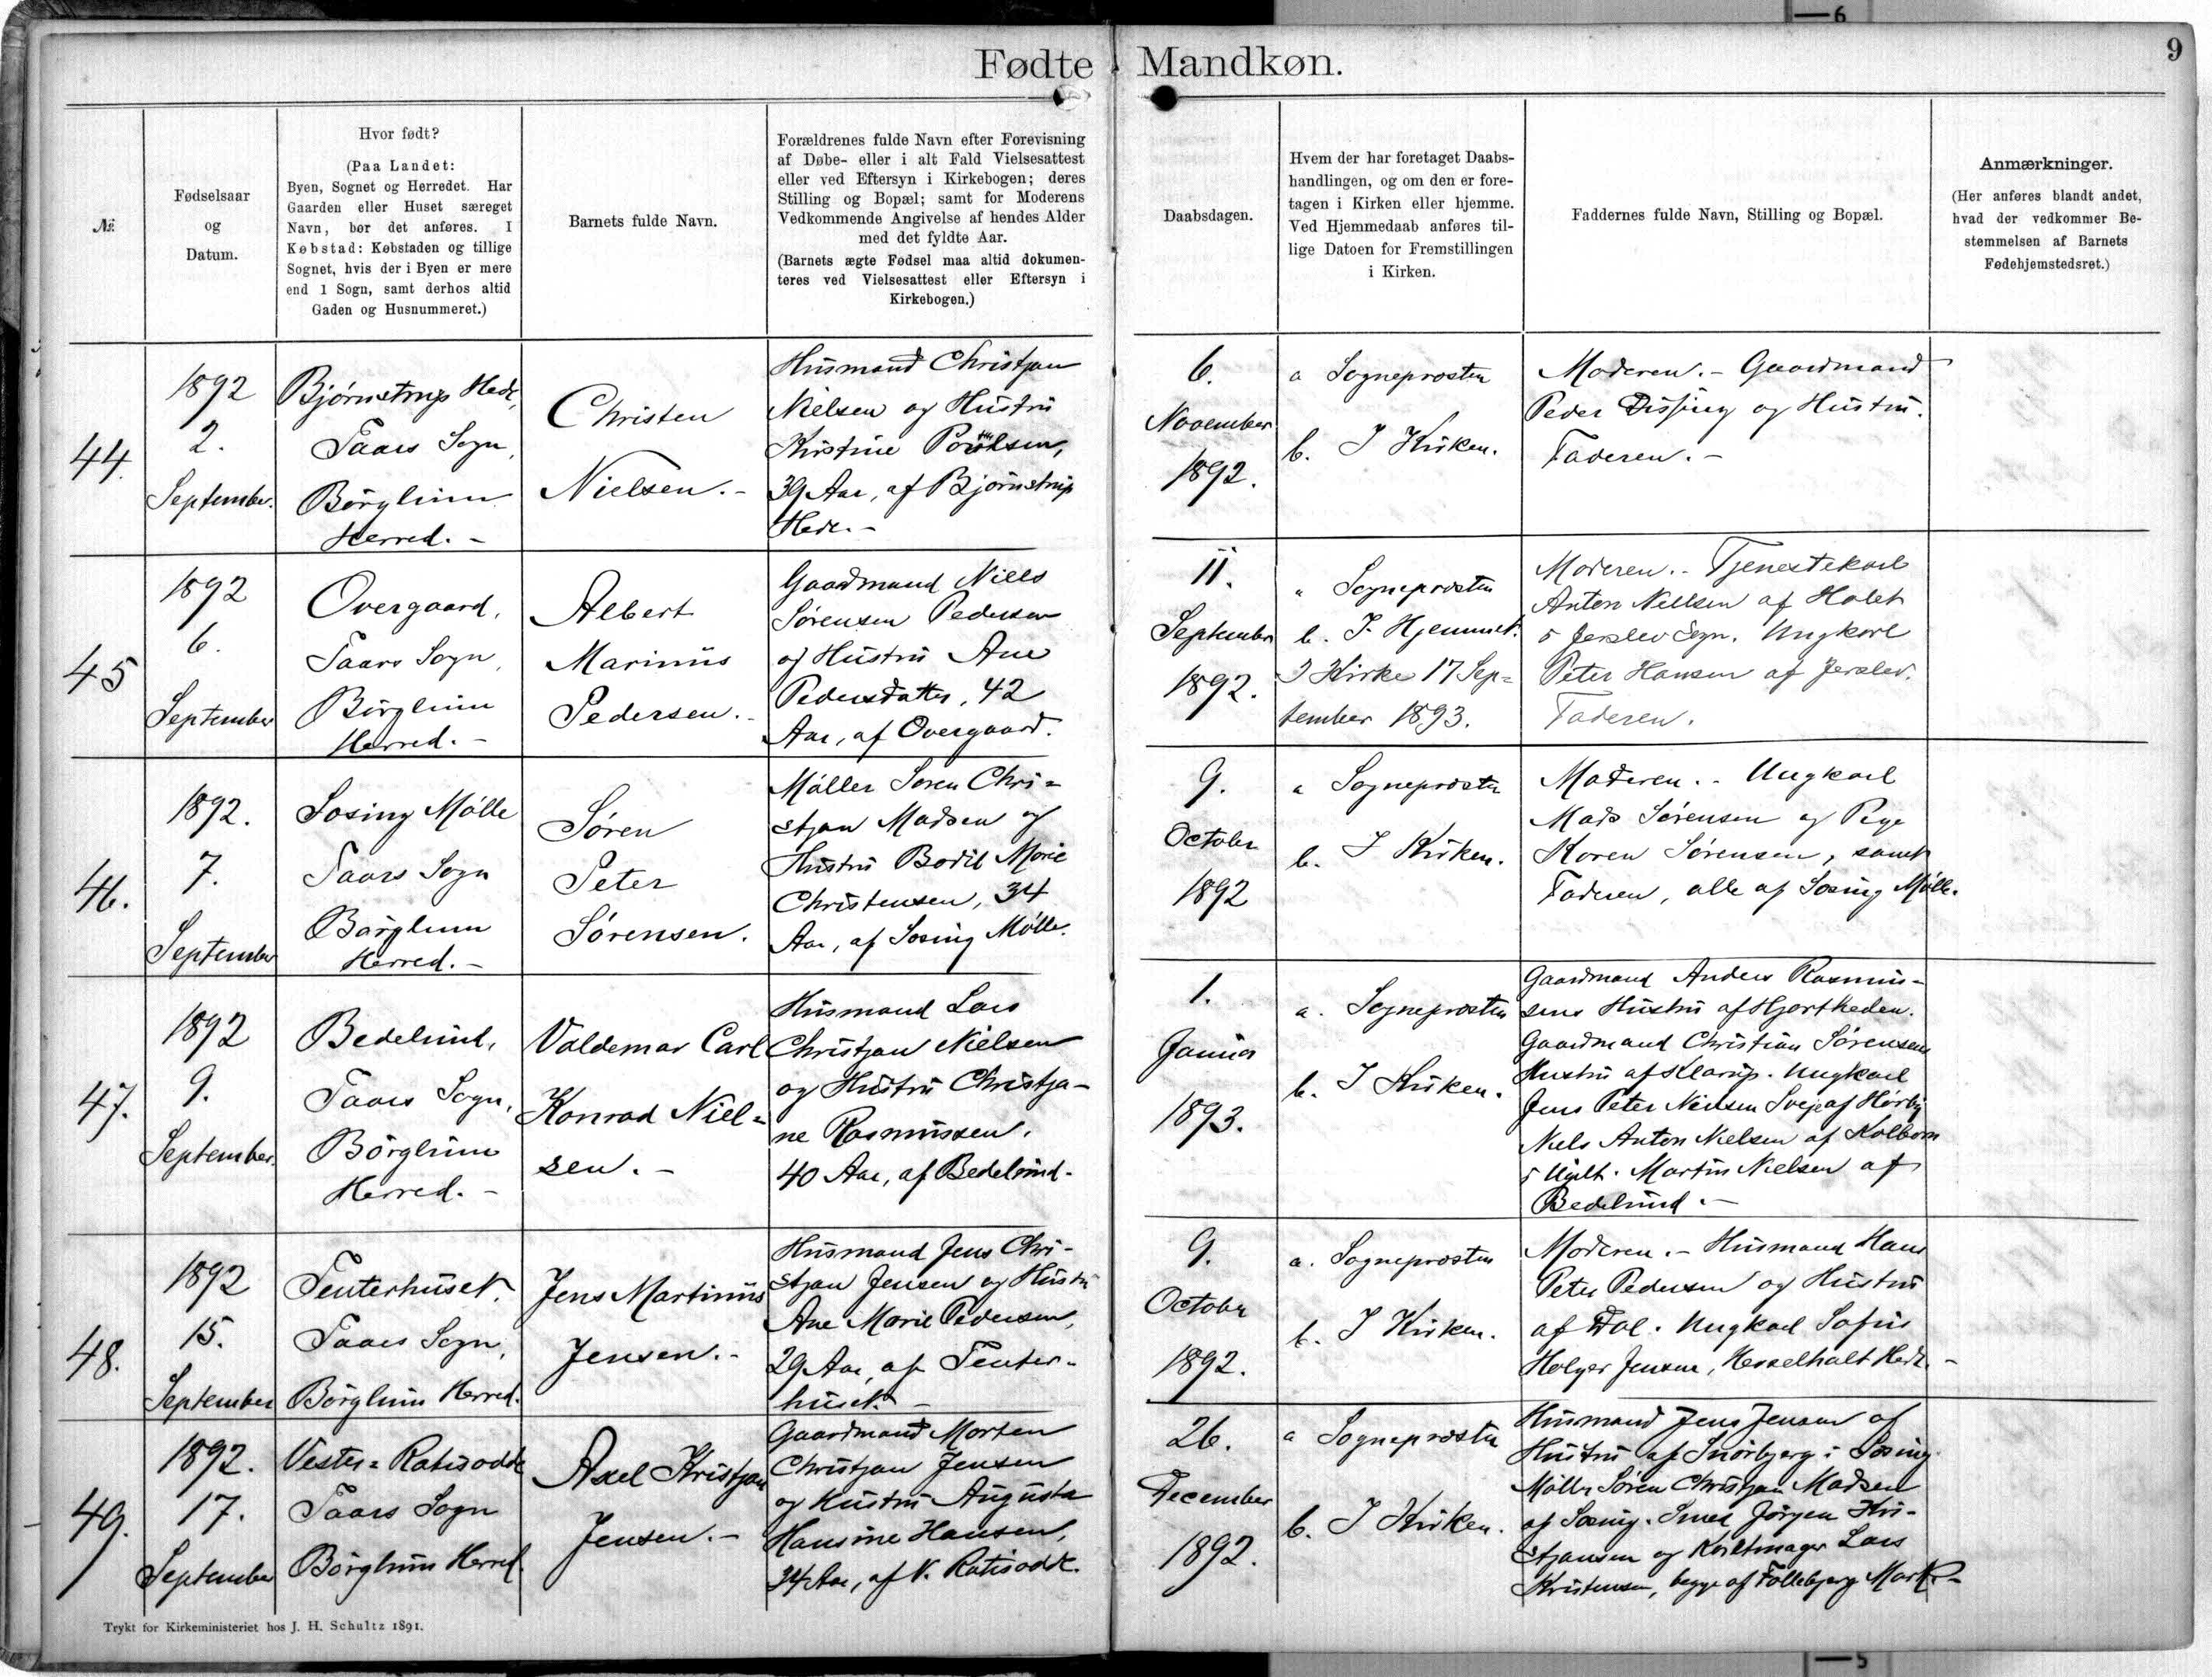 6
Fødte Mandkøn.
9
№
Fødselsaar
og
Datum.
Hvor født?
(Paa Landet:
Byen, Sognet og Herredet. Har
Gaarden eller Huset særeget
Navn, bør det anføres. I
Købstad: Købstaden og tillige
Sognet, hvis der i Byen er mere
end 1 Sogn, samt derhos altid
Gaden og Husnummeret.)
Barnets fulde Navn.
Forældrenes fulde Navn efter Forevisning
af Døbe- eller i alt Fald Vielsesattest
eller ved Eftersyn i Kirkebogen; deres
Stilling og Bopæl; samt for Moderens
Vedkommende Angivelse af hendes Alder
med det fyldte Aar.
(Barnets ægte Fødsel maa altid dokumen-
teres ved Vielsesattest eller Eftersyn i
Kirkebogen.)
Daabsdagen.
Hvem der har foretaget Daabs-
handlingen, og om den er fore-
tagen i Kirken eller hjemme.
Ved Hjemmedaab anføres til-
lige Datoen for Fremstillingen
i Kirken.
Faddernes fulde Navn, Stilling og Bopæl.
Anmærkninger.
(Her anføres blandt andet,
hvad der vedkommer Be-
stemmelsen af Barnets
Fødehjemstedsret.)
44.
1892
2.
September.
Bjørnstrup Hede,
Taars Sogn,
Børglum
Herred.-
Christen
Nielsen.-
Husmand Christjan
Nielsen og Hustru
Kristine
39 Aar, af Bjørnstrup
Hede.-
6.
November
1892.
a Sogneprsten
b. I Kirken.
Moderen.- Gaardmand
Peder og Hustru.
Faderen.-
45
1892
6.
September
Overgaard,
Taars Sogn,
Børglum
Herred.-
Albert
Marinus
Pedersen.-
Gaardmand Niels
Sørensen Pedersen
og Hustru Ane
Pedersdatter, 42
Aar, af Overgaard.
11.
September
1892.
" Sognepræsten
b. I Hjemmet.
I Kirke 17 Sep=
tember 1893.
Moderen.- Tjenestekarl
Anton Nielsen af Holet
i Jerslev Sogn. Ungkarl
Peter Hansen af Jerslev.
Faderen.
46.
1892.
7.
September
Sosing Mølle
Taars Sogn
Børglum
Herred.-
Søren
Peter
Sørensen.
Møller Søren Chri=
stjan Madsen og
Hustru Bodil Marie
Christensen, 34
Aar, af Sosing Mølle.
9.
October
1892
a Sognepræsten
b. I Kirken.
Moderen.- Ungkarl
Mads Sørensen og Pige
Karen Sørensen, samt
Faderen, alle af Sosing Mølle.
47.
1892
9.
September.
Bedelund,
Taars Sogn,
Børglum
Herred.-
Valdemar Carl
Konrad Niel=
sen.-
Husmand Lars
Christjan Nielsen
og Hustru Christja-
ne Rasmussen,
40 Aar, af Bedelund.
1.
Januar
1893.
a. Sognepræsten
b. I Kirken.
Gaardmand Anders Rasmus-
sens Hustru af Hjortheden.
Gaardmand Christian Sørensens
Hustru af Klarup. Ungkarl
Jens Peter Nielsen af Hørby
Niels Anton Nielsen af
i Ugilt. Martin Nielsen af
Bedelund.-
48.
1892
15.
September
Tenterhuset.
Taars Sogn,
Børglum Herred.
Jens Martinus
Jensen.-
Husmand Jens Chri-
stjan Jensen og Hustru
Ane Marie Pedersen,
29 Aar, af Tenter-
huset.-
9.
October
1892.
a. Sognepræsten
b. I Kirken.
Moderen.- Husmand Hans
Peter Pedersen og Hustru
af Dal. Ungkarl Sofus
Holger Jensen, Hesselholt Hede.-
49.
1892.
17.
September
Vester= Ratisodde
Taars Sogn
Børglum Herred.
Axel Kristjan
Jensen.-
Gaardmand Morten
Christjan Jensen
og Hustru Augusta
Hansine Hansen,
34 Aar, af V. Ratisodde.
26.
December
1892.
a Sognepræsten
b. I Kirken.
Husmand Jens Jensen af
Hustru af Snorbjerg i Sosing.
Møller Søren Christjan Madsen
af Sosing. Smed Jørgen Kri-
stjansen og Lars
Kristensen, begge af Follebjerg Mark.-
Trykt for Kirkeministeriet hos J. H. Schultz 1891.
5